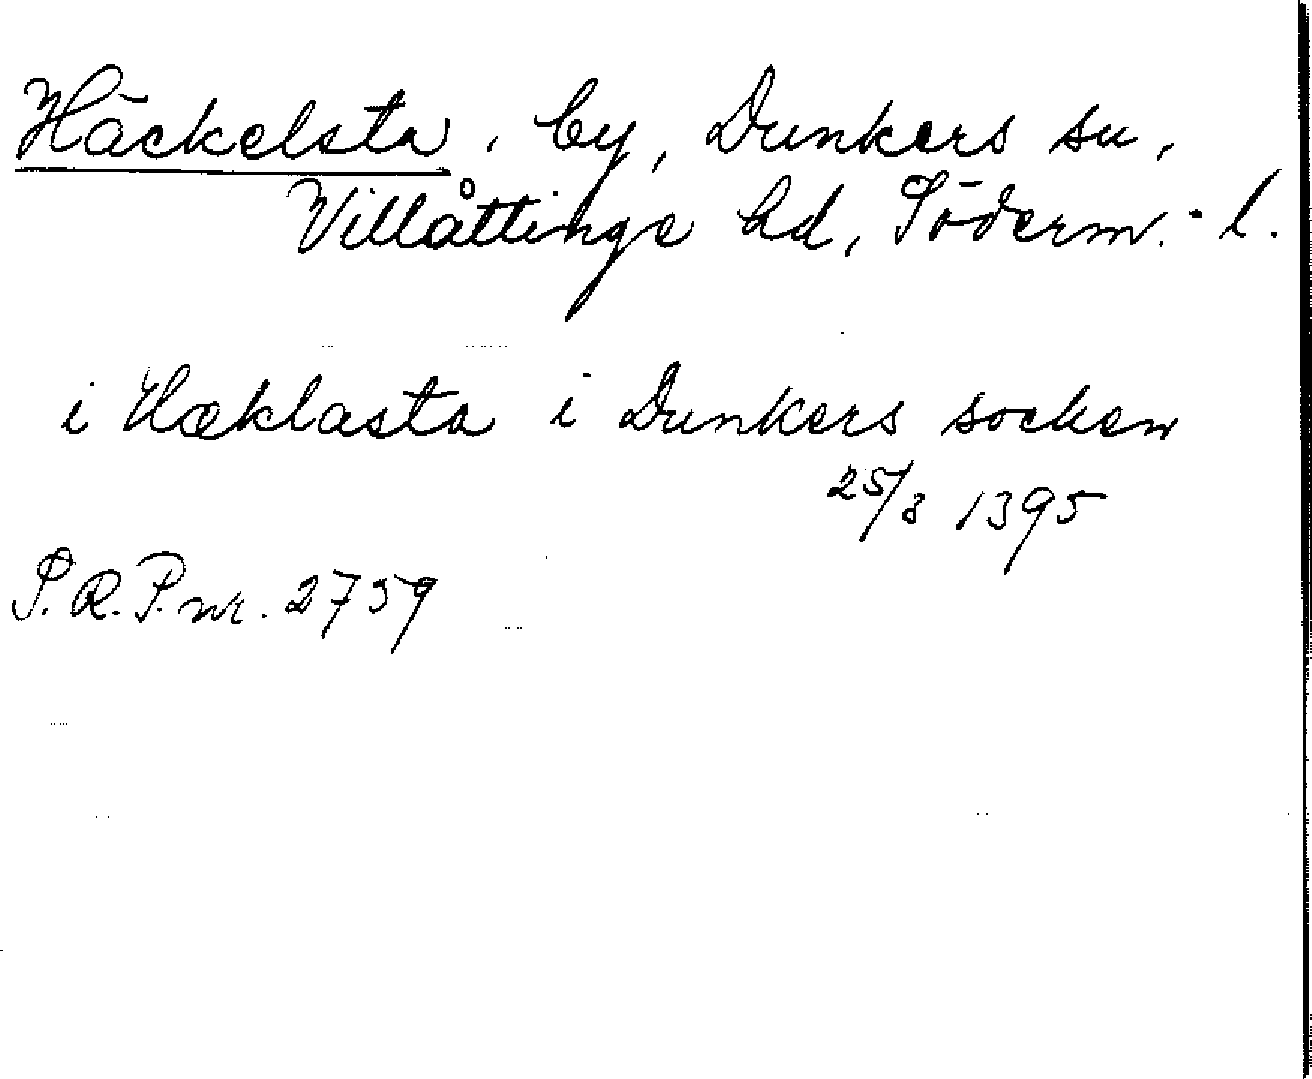 Häckelsta, by, Dunkers sn,
Villåttinge hd, Söderm.-l.
i Hæklasta i Dunkers socken
25/8 1395
S.R.P. nr. 2759